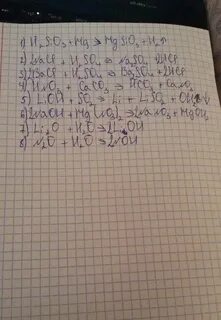 1) H₂SiO₃ + Mg → MgSiO₃ + H₂↑
2) 2NaCl + H₂SO₄ → Na₂SO₄ + 2HCl
3) BaCl + H₂SO₄ → BaSO₄ + 2HCl
4) HNO₃ + CaCO₃ → HCO₃ + CaNO₃
5) LiOH + SO₂ → Li + LiSO₄ +
6) 2NaOH + Mg(NO₃)₂ → 2NaNO₃ + MgOH₂
7) Li₂O + H₂O → 2LiOH
8) + H₂O →